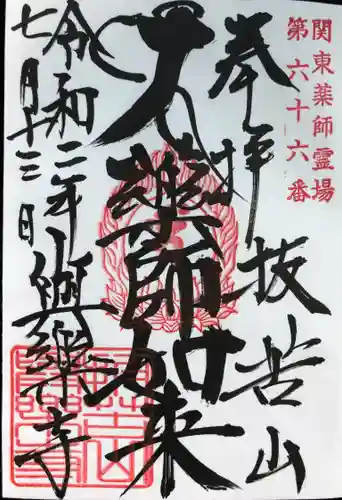 関東薬師霊場
第六十六番
奉拝
抜苦山
薬師如来
令和二年
七月十三日
與樂寺